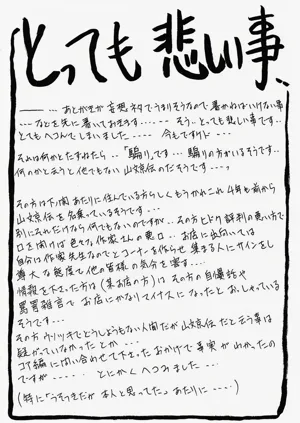 とっても悲しい事、、
――― … あとがきが妄想ネタでうまりそうなので書かねばいけない事
… などを先に書いておきます…… ―― そう‥とっても悲しい事です‥
とてもへコんでしまいました ---- 今もですけど ---
それは何かとたずねたら ‥「騙り」です … 騙りの方がいるそうです‥
何のかと言うと他でもない 山文京伝のだそうです ---、
その方は下関あたりに住んでいる方らしくもうかれこれ4年も前から
山文京伝を名乗っているそうです ---
別にそれだけなら何でもないのですが… その方とかく評判の悪い方で
口を開けば色々な作家さんの悪口 ‥ お店に出向いては
自分は作家先生なのでとコーナーを作らせ 集まる人にサインをし
尊大な態度で他の皆様の気分を害す ----
情報を下さった方は(某お店の方)は その方の自慢話や
罵詈雑言でお店にかなりマイナスになったとおっしゃっている
そうです ---
その方 ウソツキでどうしようもない人間だが山文京伝だと言う事は
疑がっていなかったとか ----
コア編に問い合わせて下さったおかげで事実がわかったの
ですが ----- とにかくへコみました ---
(特に「うそつきだが本人と思ってた。」あたりに ----)